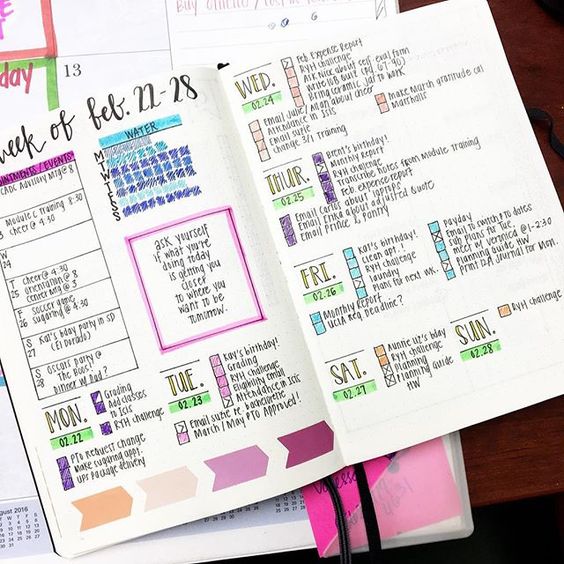 13
Week of Feb. 22-28
APPOINTMENTS/EVENTS
CADC Advisory Mtg @ 8
Module C Training 8:30
cheer @ 4:30
W
24
T
25
cheer @ 4:30
orientation @
center Mtg @ 3
F
26
soccer game
sugaring @ 4:30
S
27
Kat's bday party in SD
(El Dorado)
S
28
Oscars party @
The Roos!
Dinner w/ Dad?
WATER
M
T
W
T
F
S
S
ask yourself
if what you're
doing today
is getting you
closer
to where you
want to be
tomorrow.
MON.
02.22
Grading
Add classes
to Isis
RYH challenge
PTO Request Change
Make sugaring appt.
UPS package delivery
TUE.
02.23
Kay's birthday!
Grading
RYH challenge
Eligibility email
Attendance in Isis
Email Suzie re
March/May PTO Approved!
WED.
02.24
Feb Expense Report
RYH challenge
Ask Nice about self eval form
Bring ceramic to work
Email Julie/Alan about cheer
Attendance in Isis
Email Suzie
change 3/1 Training
Make March gratitude cal
Marshalls
THUR.
02.25
Bren's birthday!
Monthly Report
RYH challenge
Transcribe notes from module training
Feb. expense report
Email Chris about laptops
Email Erika about adjusted quote
Email Prince's Pantry
FRI.
02.26
Kat's birthday!
Clean apt.!
RYH challenge
Laundry
Plans for next wk.
Monthly Report
UCLA Reg. Deadline?
payday
Email to switch to dates
sub plans for Tue.
meet w/ Veronica @ 1-2:30
Planning Guide HW
Print Journal for Mon.
SAT.
02.27
Auntie Liz's bday
RYH challenge
Planning
Planning Guide
HW
SUN.
02.28
RYH challenge
August 2016